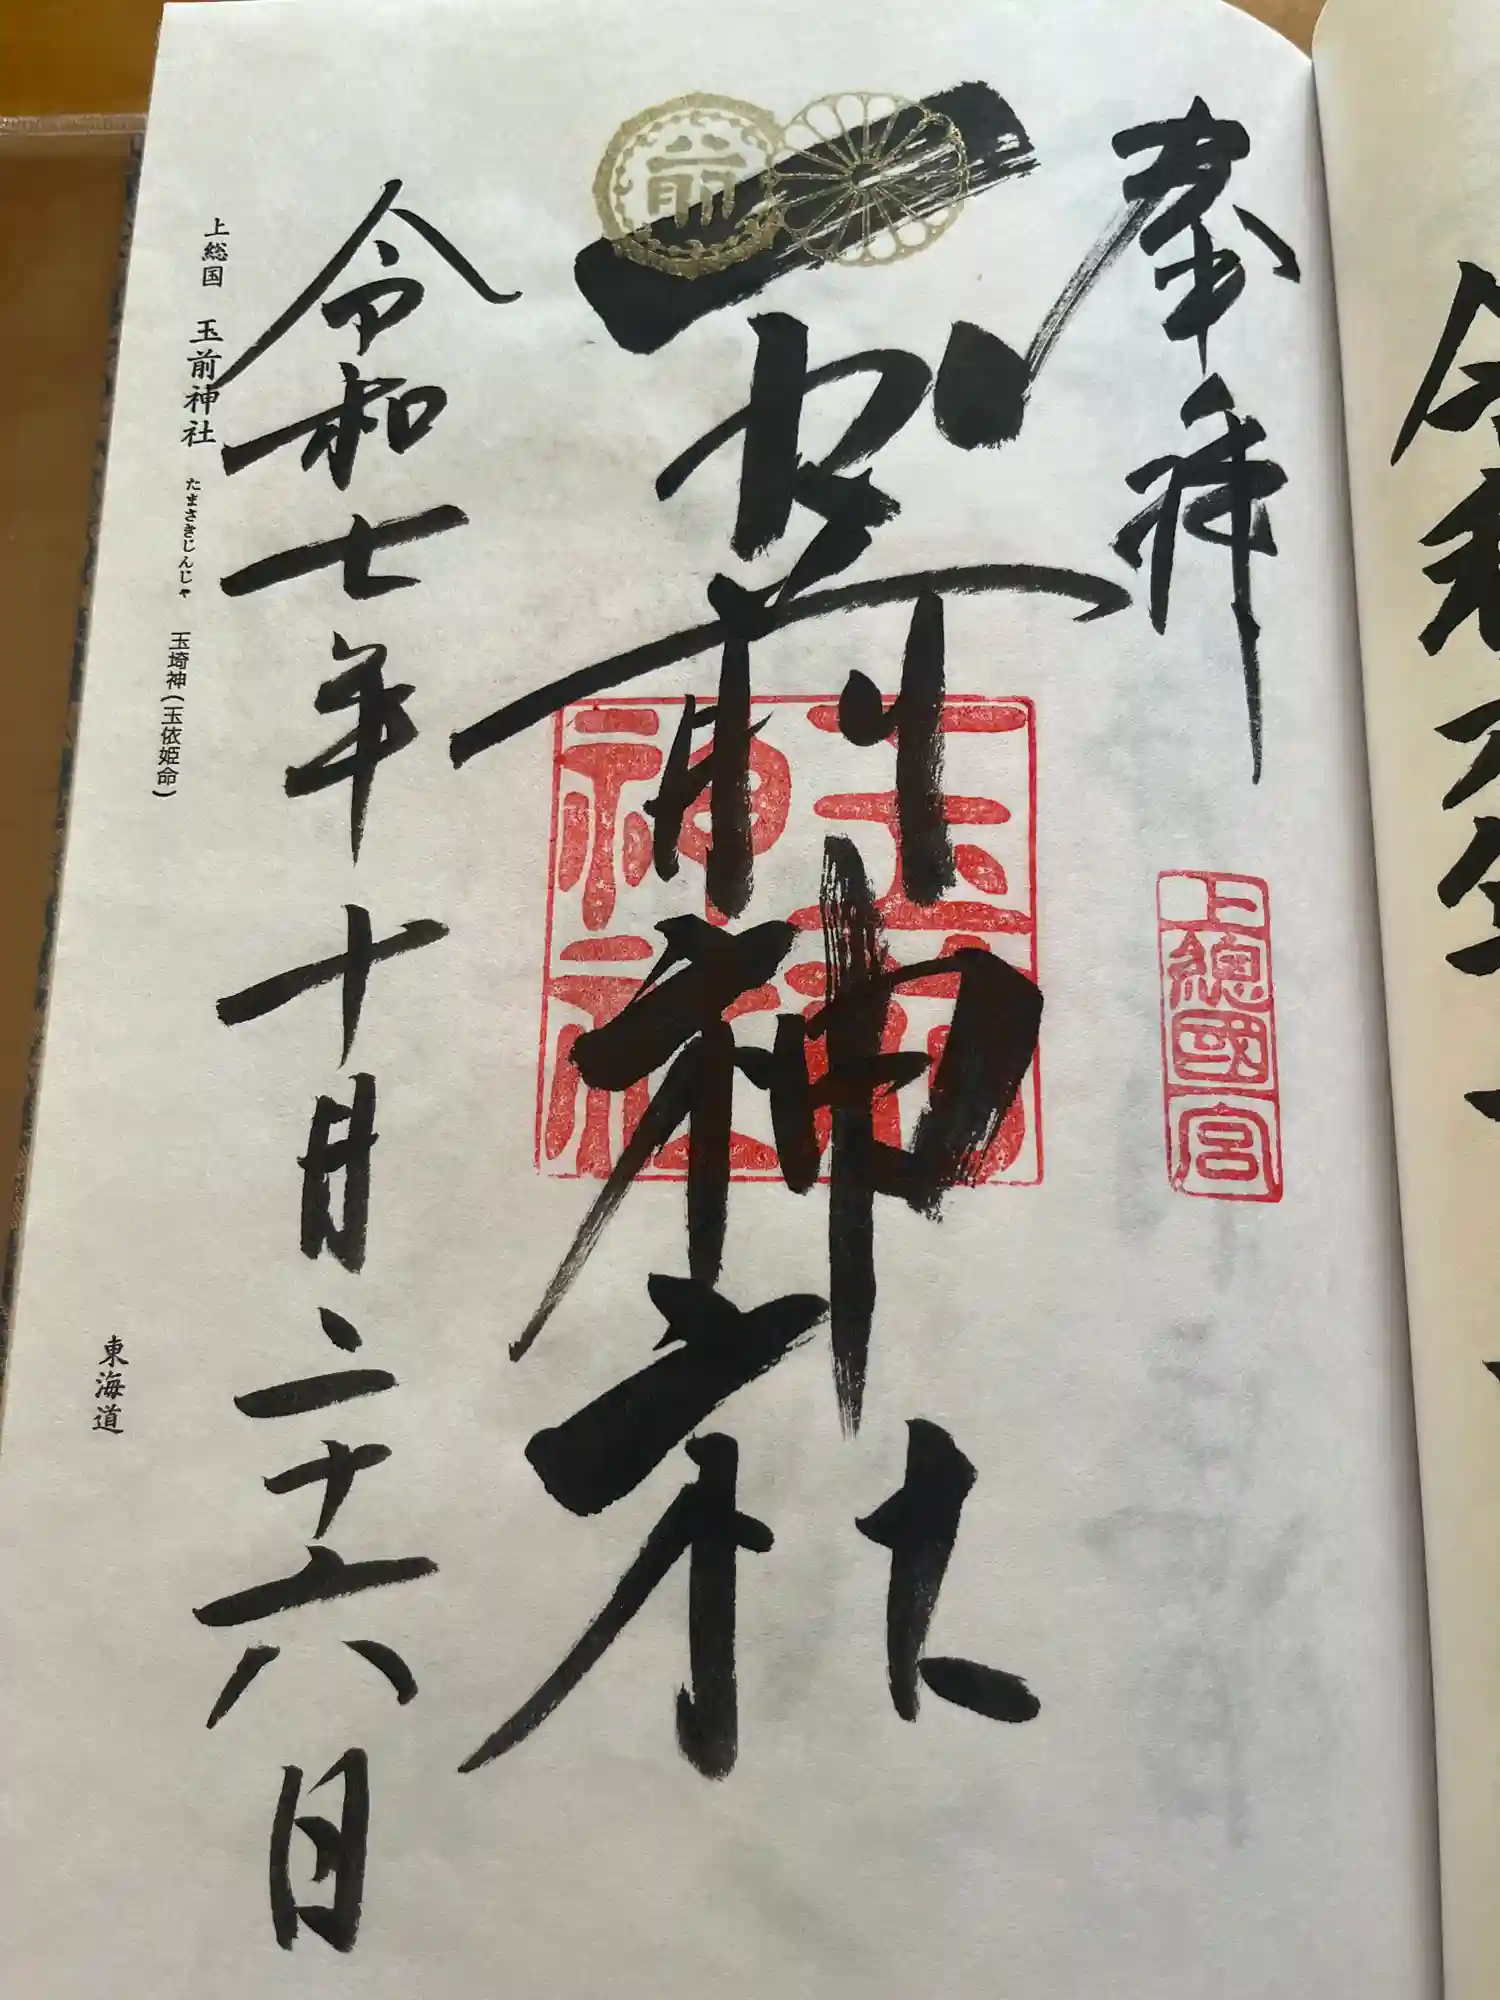 奉拝
上總國一宮
玉前神社
玉前神社
令和七年十月二十六日
上総国 玉前神社 たまさきじんじゃ 玉埼神(玉依姫命)
東海道